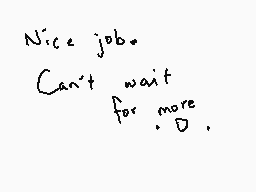 Nice job.
Can't wait
for more
. O .